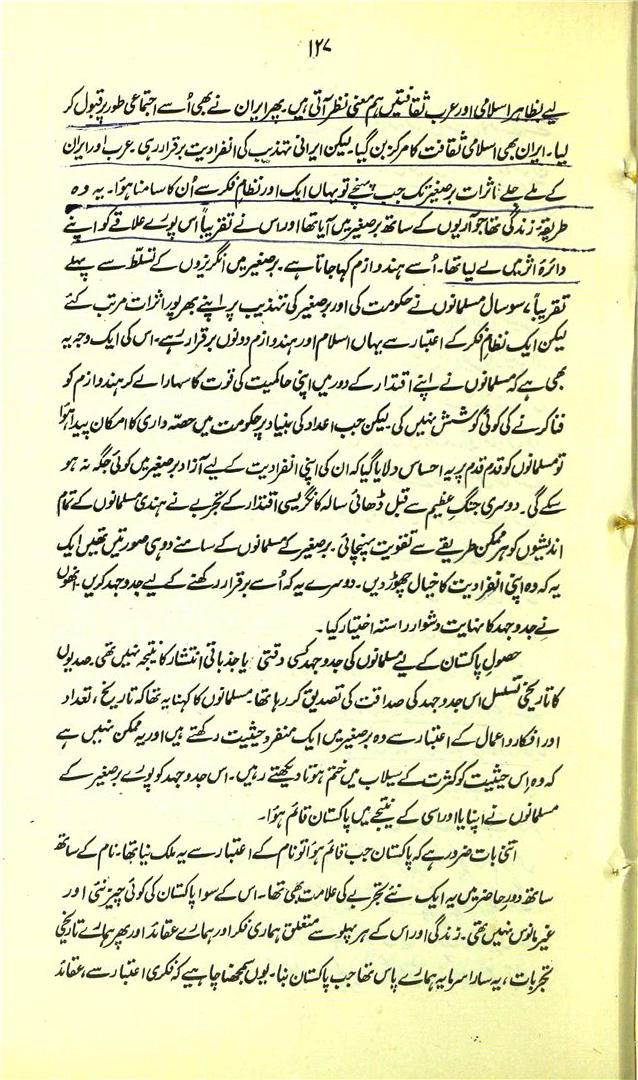 ۱۲۷
لیے بظاہر اسلامی اور عرب ثقافتیں ہم معنی نظر آتی ہیں۔ پھر ایران نے بھی اُسے اجتماعی طور پر قبول کر
لیا۔ ایران بھی اسلامی ثقافت کا مرکز بن گیا۔ لیکن ایرانی تہذیب کی انفرادیت برقرار رہی۔ عرب اور ایران
کے ملے جلے اثرات برصغیر تک جب پہنچے تو یہاں ایک اور نظامِ فکر سے اُن کا سامنا ہوا۔ یہ وہ
طریقۂ زندگی تھا جو آریوں کے ساتھ برصغیر میں آیا تھا اور اس نے تقریباً اس پورے علاقے کو اپنے
دائرۂ اثر میں لے لیا تھا۔ اُسے ہندوازم کہا جاتا ہے۔ برصغیر میں انگریزوں کے تسلّط سے پہلے
تقریباً ۷ سو سال مسلمانوں نے حکومت کی اور برصغیر کی تہذیب پر اپنے بھرپور اثرات مرتب کئے
لیکن ایک نظامِ فکر کے اعتبار سے یہاں اسلام اور ہندوازم دونوں برقرار رہے۔ اس کی ایک وجہ یہ
بھی ہے کہ مسلمانوں نے اپنے اقتدار کے دور میں اپنی حاکمیت کی قوت کا سہارا لے کر ہندوازم کو
فنا کرنے کی کوئی کوشش نہیں کی۔ لیکن جب اعداد کی بنیاد پر حکومت میں حصّہ داری کا امکان پیدا ہؤا
تو مسلمانوں کو قدم قدم پر یہ احساس دلایا گیا کہ ان کی اپنی انفرادیت کے لیے آزاد برصغیر میں کوئی جگہ نہ ہو
سکے گی۔ دوسری جنگِ عظیم سے قبل ڈھائی سالہ کانگریسی اقتدار کے تجربے نے ہندی مسلمانوں کے تمام
اندیشوں کو ہر ممکن طریقے سے تقویت پہنچائی۔ برصغیر کے مسلمانوں کے سامنے دو ہی صورتیں تھیں ایک
یہ کہ وہ اپنی انفرادیت کا خیال چھوڑ دیں۔ دوسرے یہ کہ اُسے برقرار رکھنے کے لیے جدوجہد کریں۔ انھوں
نے جدوجہد کا نہایت دشوار راستہ اختیار کیا۔
حصولِ پاکستان کے لیے مسلمانوں کی جدوجہد کسی وقتی یا جذباتی انتشار کا نتیجہ نہیں تھی۔ صدیوں
کا تاریخی تسلسل اس جدوجہد کی صداقت کی تصدیق کر رہا تھا۔ مسلمانوں کا کہنا یہ تھا کہ تاریخ، تعداد
اور افکار و اعمال کے اعتبار سے وہ برصغیر میں ایک منفرد حیثیت رکھتے ہیں اور یہ ممکن نہیں ہے
کہ وہ اِس حیثیت کو کثرت کے سیلاب میں ختم ہوتا دیکھتے رہیں۔ اس جدوجہد کو پورے برصغیر کے
مسلمانوں نے اپنایا اور اسی کے نتیجے میں پاکستان قائم ہؤا۔
اتنی بات ضرور ہے کہ پاکستان جب قائم ہؤا تو نام کے اعتبار سے یہ ملک نیا تھا۔ نام کے ساتھ
ساتھ دورِ حاضر میں یہ ایک نئے تجربے کی علامت بھی تھا۔ اس کے سوا پاکستان کی کوئی چیز نئی اور
غیر مانوس نہیں تھی۔ زندگی اور اس کے ہر پہلو سے متعلق ہماری فکر اور ہمارے عقائد اور پھر ہمارے تاریخی
تجربات، یہ سارا سرمایہ ہمارے پاس تھا جب پاکستان بنا۔ یوں سمجھنا چاہیے کہ فکری اعتبار سے، عقائد